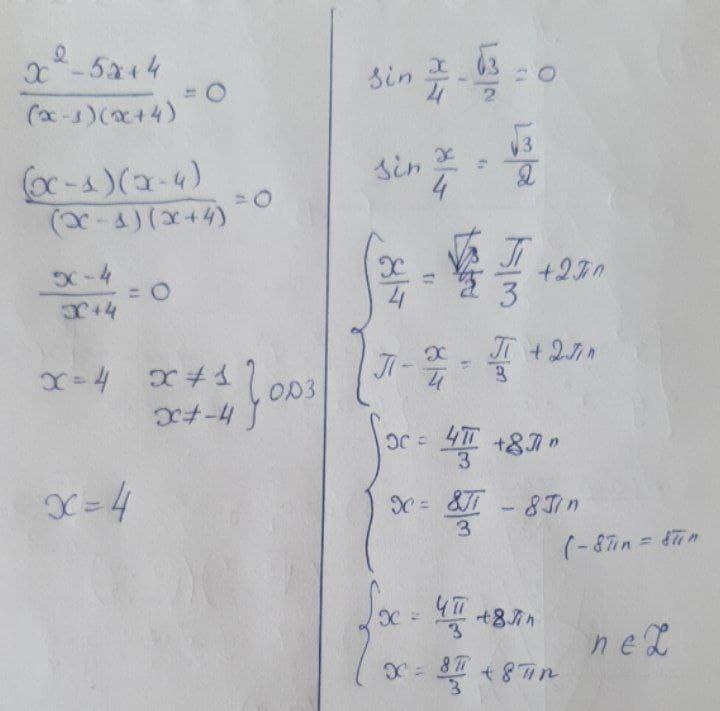 x² - 5x + 4 / (x-1)(x+4) = 0
(x-1)(x-4) / (x-1)(x+4) = 0
x-4 / x+4 = 0
x = 4 x ≠ 1 } ОДЗ
x ≠ -4
x = 4
sin x/4 - √3/2 = 0
sin x/4 = √3/2
{ x/4 = π/3 + 2πn
π - x/4 = π/3 + 2πn
{ x = 4π/3 + 8πn
x = 8π/3 - 8πn
(-8πn = 8πn
{ x = 4π/3 + 8πn
x = 8π/3 + 8πn
n ∈ Z